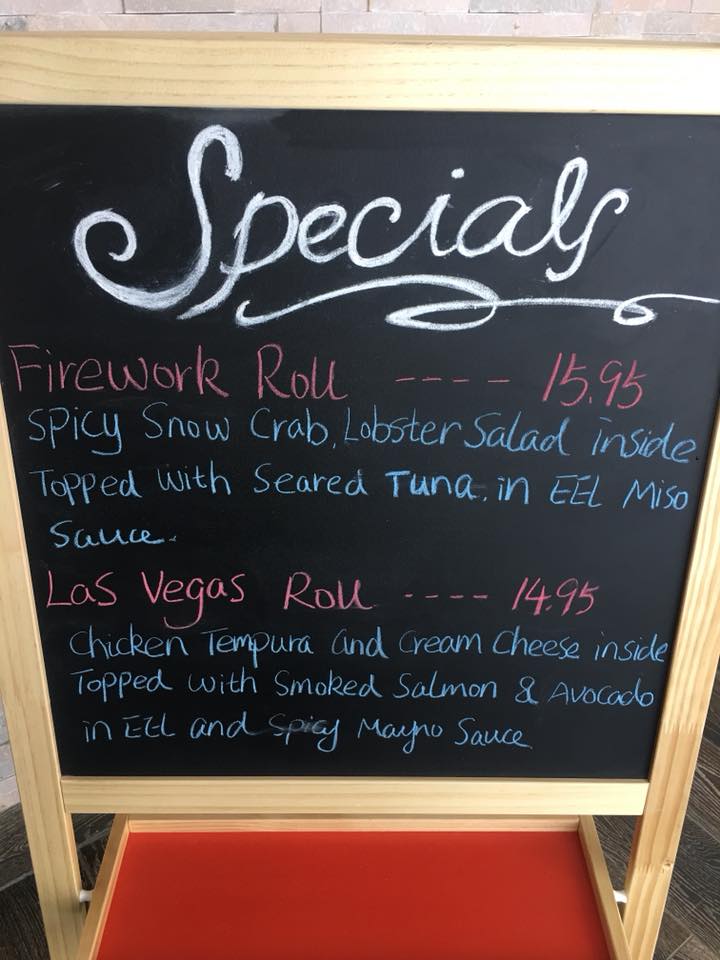 Specials
Firework Roll ---- 15.95
Spicy Snow Crab, Lobster Salad inside
Topped with Seared Tuna, in EEL Miso
Sauce.
Las Vegas Roll ---- 14.95
Chicken Tempura and Cream Cheese inside
Topped with Smoked Salmon & Avocado
in EEL and Spicy Mayno Sauce